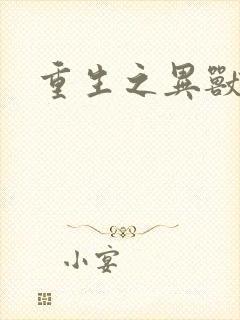 重生之異獸
小宴